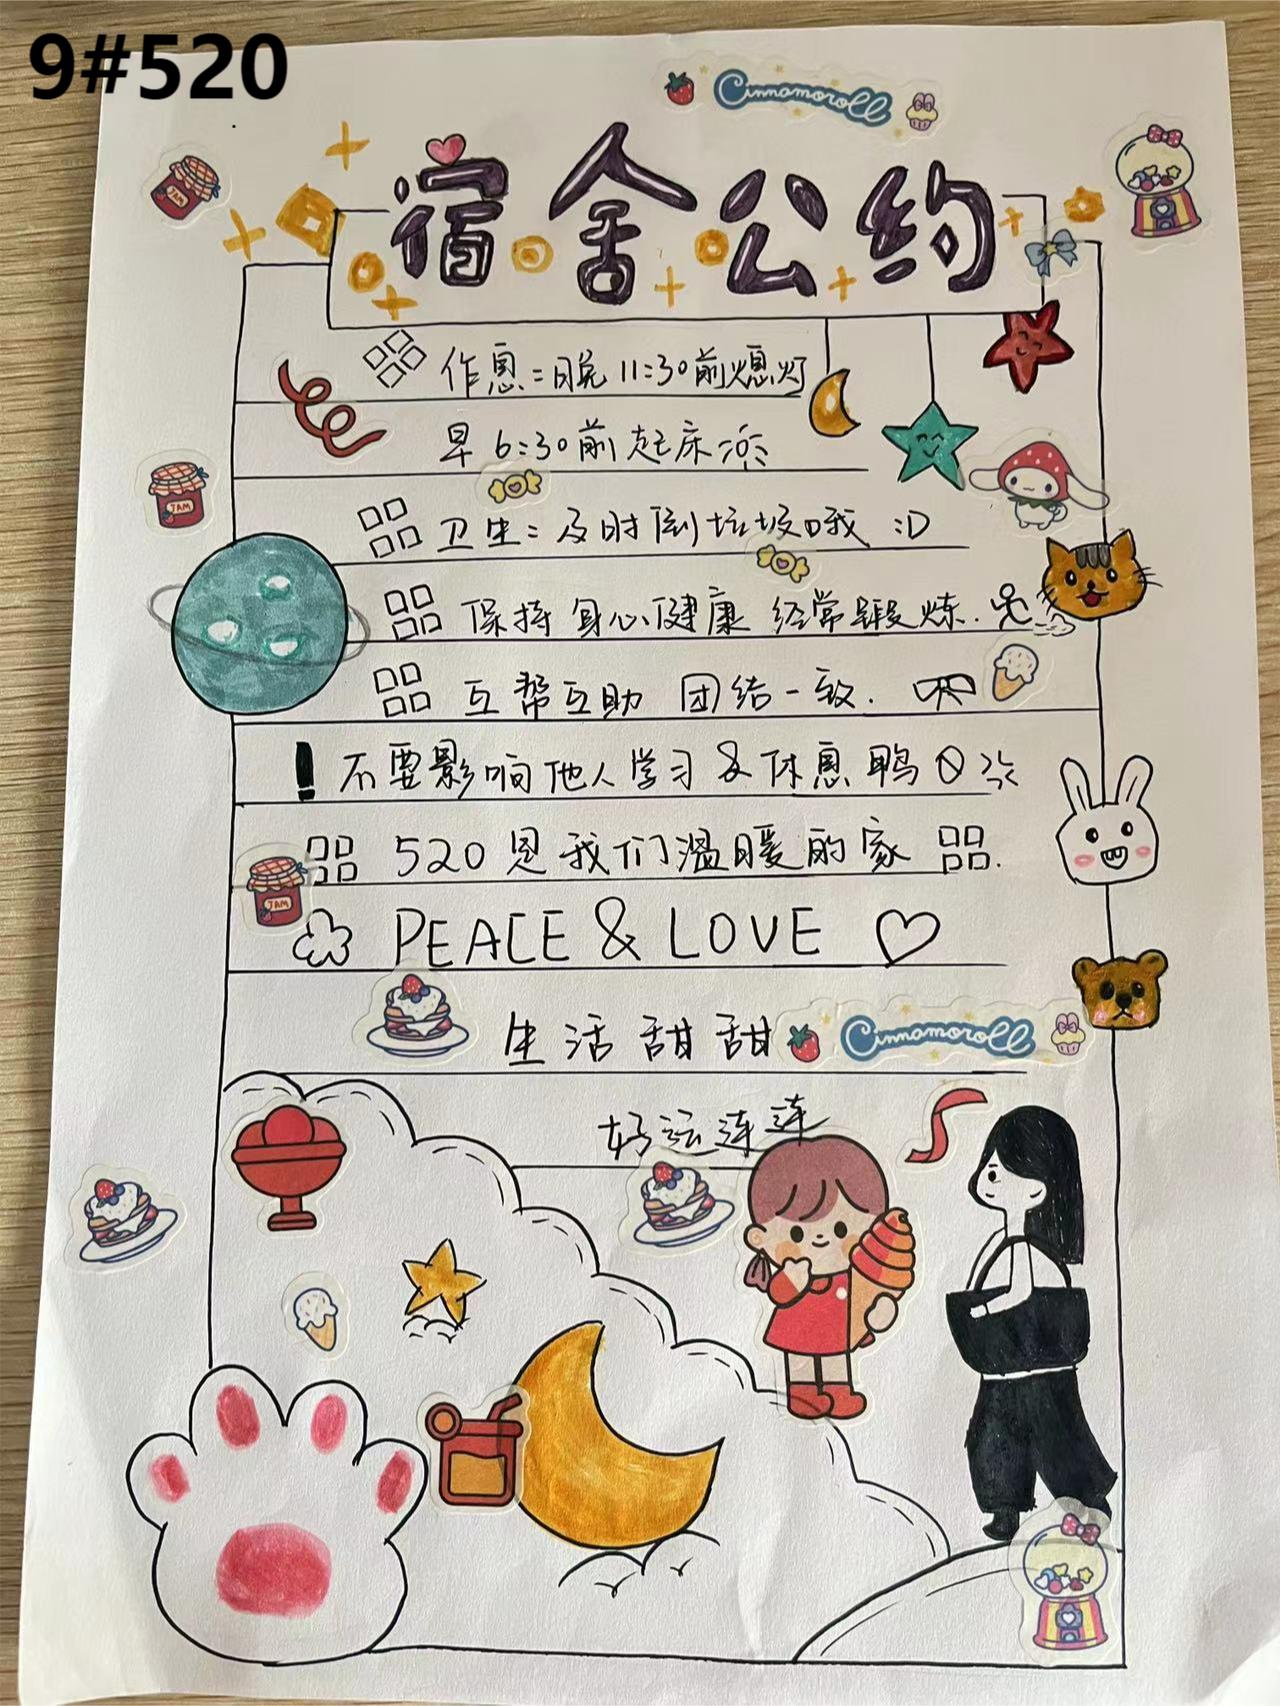 9#520
Cinnamoroll
宿舍公约
作息:晚11:30前熄灯
早6:30前起床
JAM
卫生:及时倒垃圾哦 :D
JAM
保持身心健康 经常锻炼.
互帮互助 团结一致.
! 不要影响他人学习&休息鸭
520是我们温暖的家
JAM
PEACE & LOVE
生活甜甜
Cinnamoroll
好运连连